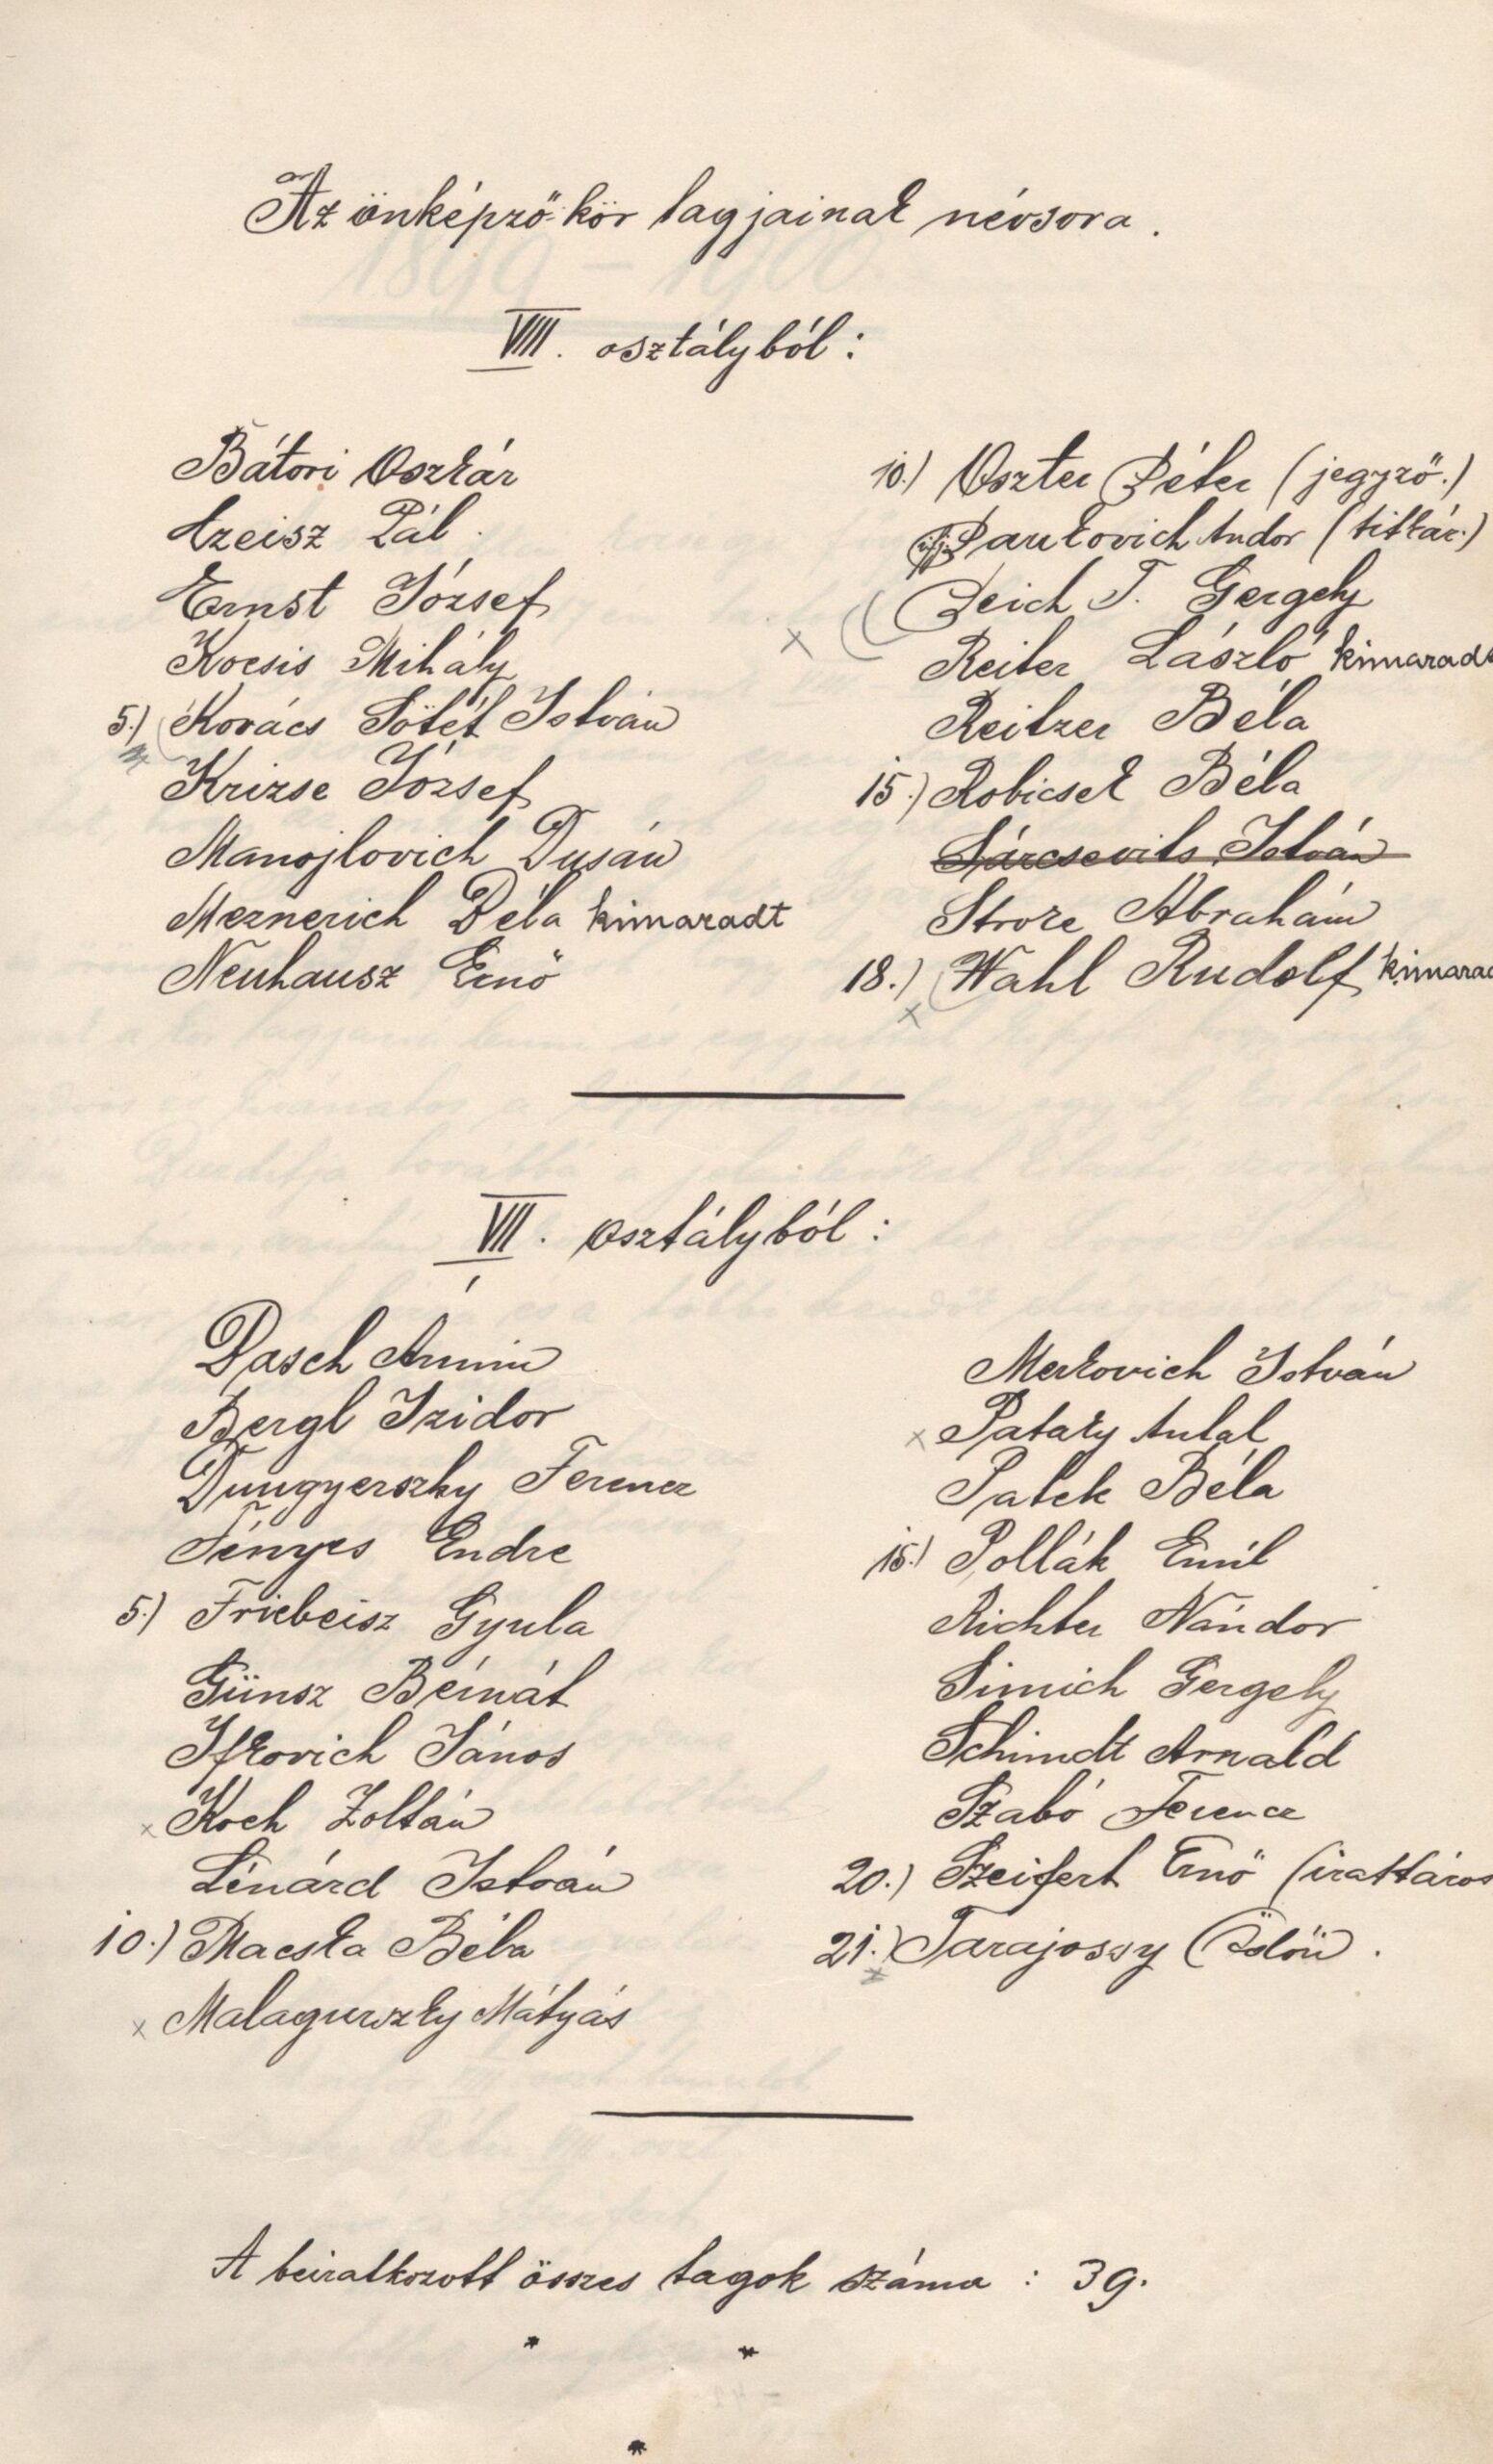 Az önképző-kör tagjainak névsora.
VIII. osztályból:
Bátori Oszkár
Czeisz Pál
Ernst József
Kocsis Mihály
5.) Kovács Sötét István
Krizse József
Manojlovich Dusán
Meznerich Béla kimaradt
Neuhausz Ernő
10.) Oszter Péter (jegyző.)
ifj. Paukovich Andor (titkár.)
Reich T. Gergely
Reiter László kimaradt
Reitzer Béla
15.) Robicsek Béla
Sárcsevits István
Stroze Ábrahám
18.) Wahl Rudolf kimarad
VII. osztályból:
Basch Ármin
Bergl Izidor
Dungyerszky Ferencz
Fényes Endre
5.) Friebeisz Gyula
Günsz Bernát
Ifkovich János
Koch Zoltán
Lénárd István
10.) Macska Béla
Malagurszky Mátyás
Merkovich István
Pataky Antal
Patek Béla
15.) Pollák Emil
Richter Nándor
Simich Gergely
Schimdt Arnald
Szabó Ferencz
20.) Szeifert Ernő (irattáros
21.) Tarajossy Ödön.
A beiratkozott összes tagok száma : 39.